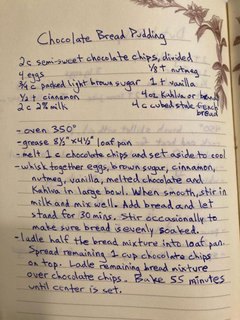 Chocolate Bread Pudding
2 c semi-sweet chocolate chips, divided
4 eggs 1/8 t nutmeg
3/4 c packed light brown sugar 1 t vanilla
1/2 t cinnamon 4 oz Kahlua or
2 c 2% milk 4 c cubed stale french bread
- oven 350°
- grease 8½" x 4½" loaf pan
- melt 1 c chocolate chips and set aside to cool
- whisk together eggs, brown sugar, cinnamon,
nutmeg, vanilla, melted chocolate and
Kahlua in large bowl. When smooth, stir in
milk and mix well. Add bread and let
stand for 30 mins. Stir occasionally to
make sure bread is evenly soaked.
- ladle half the bread mixture into loaf pan.
Spread remaining 1 cup chocolate chips
on top. Ladle remaining bread mixture
over chocolate chips. Bake 55 minutes
until center is set.